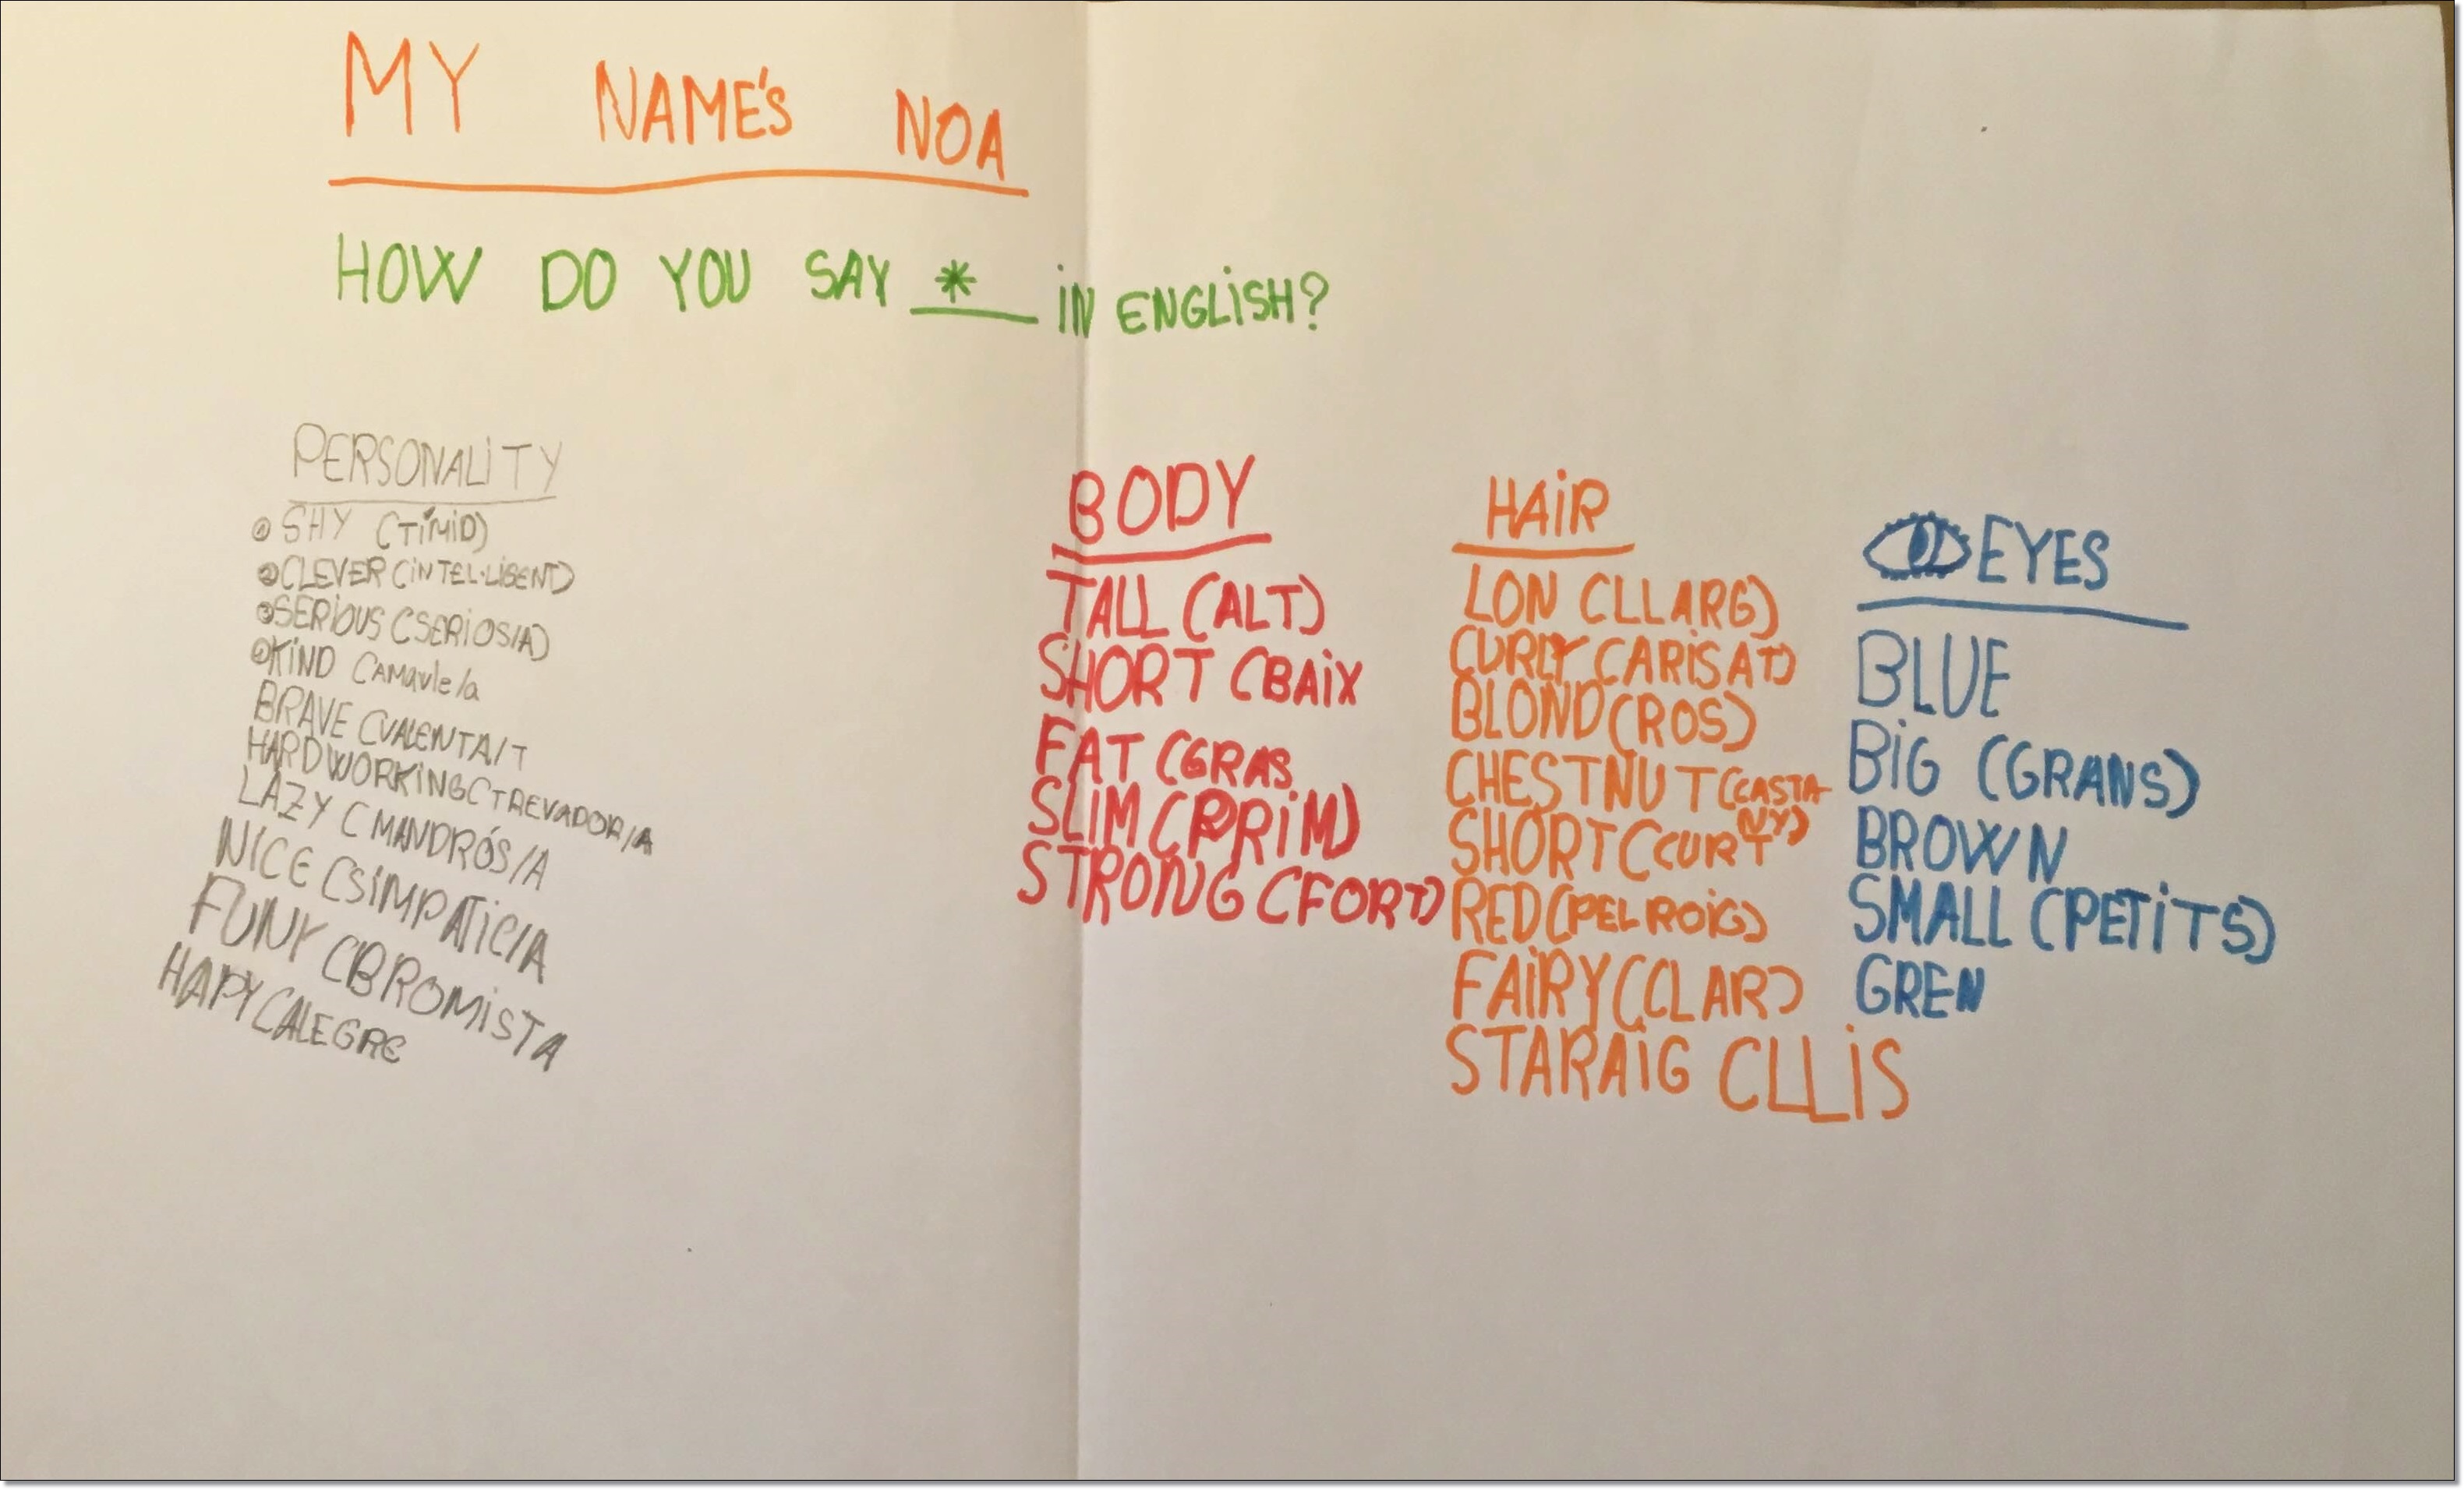 MY NAME'S NOA
HOW DO YOU SAY * IN ENGLISH?
PERSONALITY
① SHY (TÍMID)
② CLEVER (INTEL·LIGENT)
③ SERIOUS (SERIOS/A)
④ KIND (AMAVLE/a
BRAVE (VALENTA/T
HARDWORKING (TREVADOR/A
LAZY (MANDRÓS/A
NICE (SIMPATIC/A
FUNY (BROMISTA
HAPY (ALEGRE
BODY
TALL (ALT)
SHORT (BAIX
FAT (GRAS
SLIM (PRIM)
STRONG (FORT)
HAIR
LON (LLARG)
CURLY (ARISAT)
BLOND (ROS)
CHESTNUT (CASTA-
NY)
SHORT (CURT
RED (PEL ROIG)
FAIRY (CLAR)
STARAIG (LLIS
EYES
BLUE
BIG (GRANS)
BROWN
SMALL (PETITS)
GREN